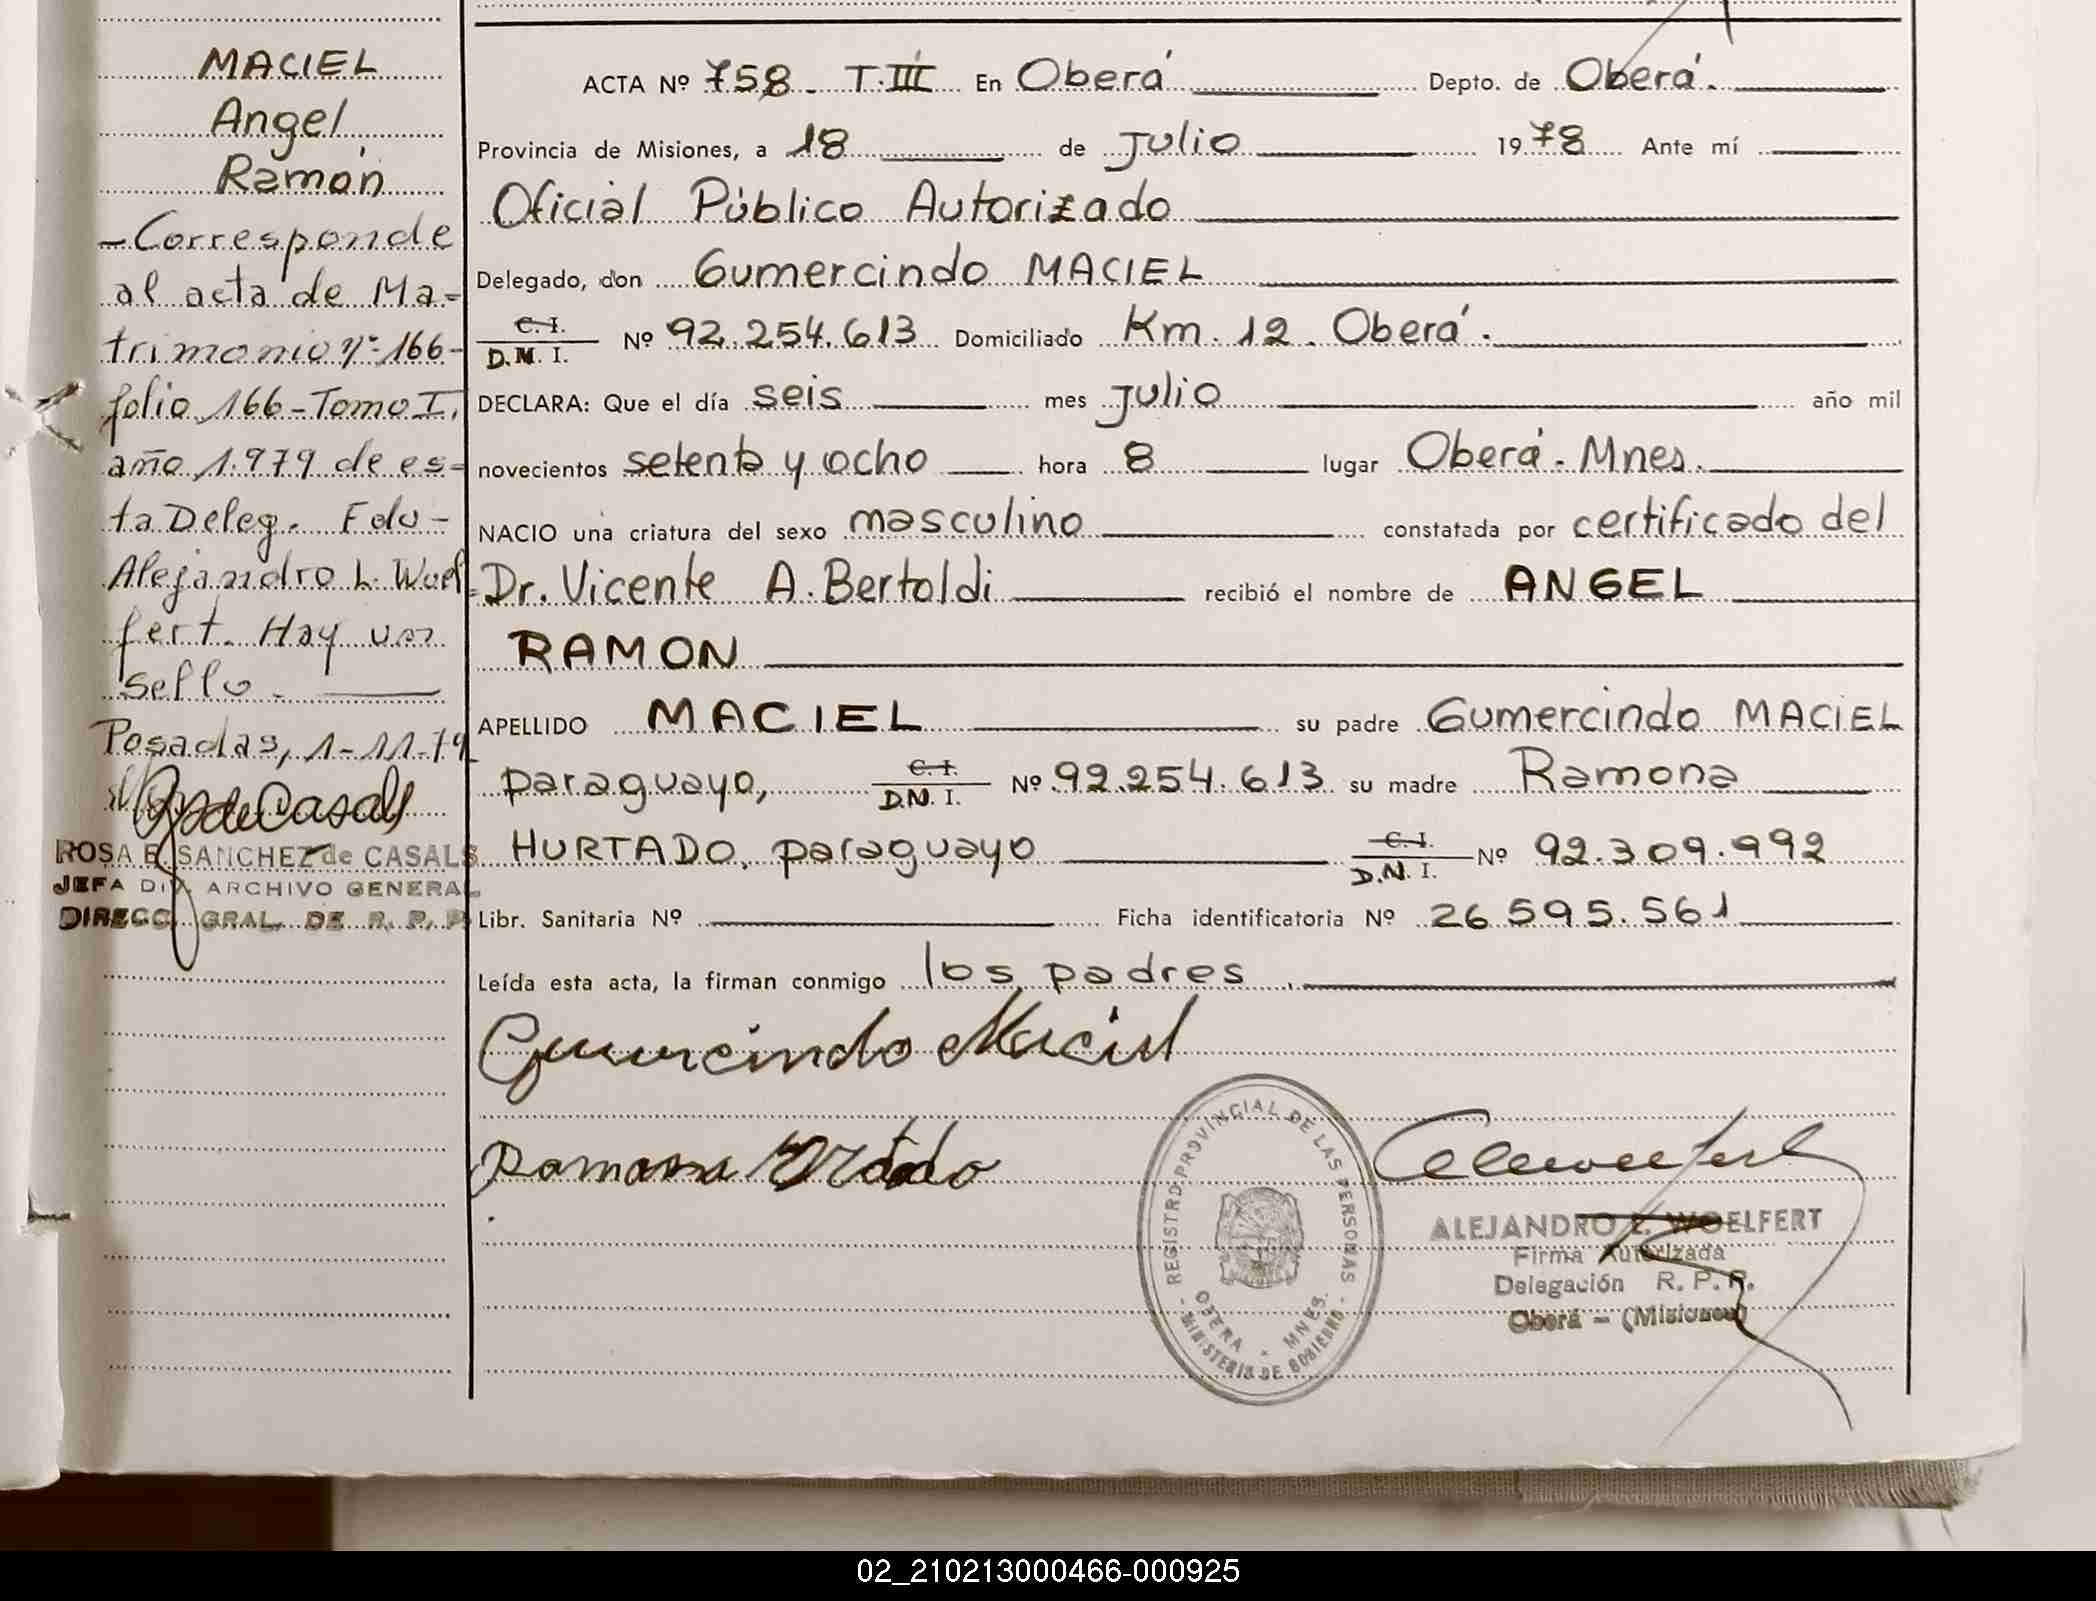 MACIEL
Angel
Ramón
- Corresponde
al acta de Ma=
trimonio nº 166-
folio 166 - Tomo I.
año 1.979 de es=
ta Deleg. Fdo -
Alejandro L. Woel=
fert. Hay un
sello. -
Posadas, 1-11-79
ROSA E. SANCHEZ de CASALS
JEFA DIV. ARCHIVO GENERAL
DIRECC. GRAL. DE R. P. P.
ACTA Nº 758 - T. III En Oberá Depto. de Oberá.
Provincia de Misiones, a 18 de julio 1978 Ante mí
Oficial Público Autorizado
Delegado, don Gumercindo MACIEL
C. I. / D.N. I. Nº 92.254.613 Domiciliado Km. 12. Oberá.
DECLARA: Que el día seis mes julio año mil
novecientos setenta y ocho hora 8 lugar Oberá - Mnes.
NACIO una criatura del sexo masculino constatada por certificado del
Dr. Vicente A. Bertoldi recibió el nombre de ANGEL
RAMON
APELLIDO MACIEL su padre Gumercindo MACIEL
paraguayo, C. I. / D.N. I. Nº 92.254.613 su madre Ramona
HURTADO, paraguayo C. I. / D.N. I. Nº 92.309.992
Libr. Sanitaria Nº Ficha identificatoria Nº 26.595.561
Leída esta acta, la firman conmigo los padres.
Gumercindo Maciel
Ramona
REGISTRO PROVINCIAL DE LAS PERSONAS
OBERA - MNES.
- MINISTERIO DE GOBIERNO -
ALEJANDRO L. WOELFERT
Firma Autorizada
Delegación R. P. P.
Oberá - (Misiones)
02_210213000466-000925